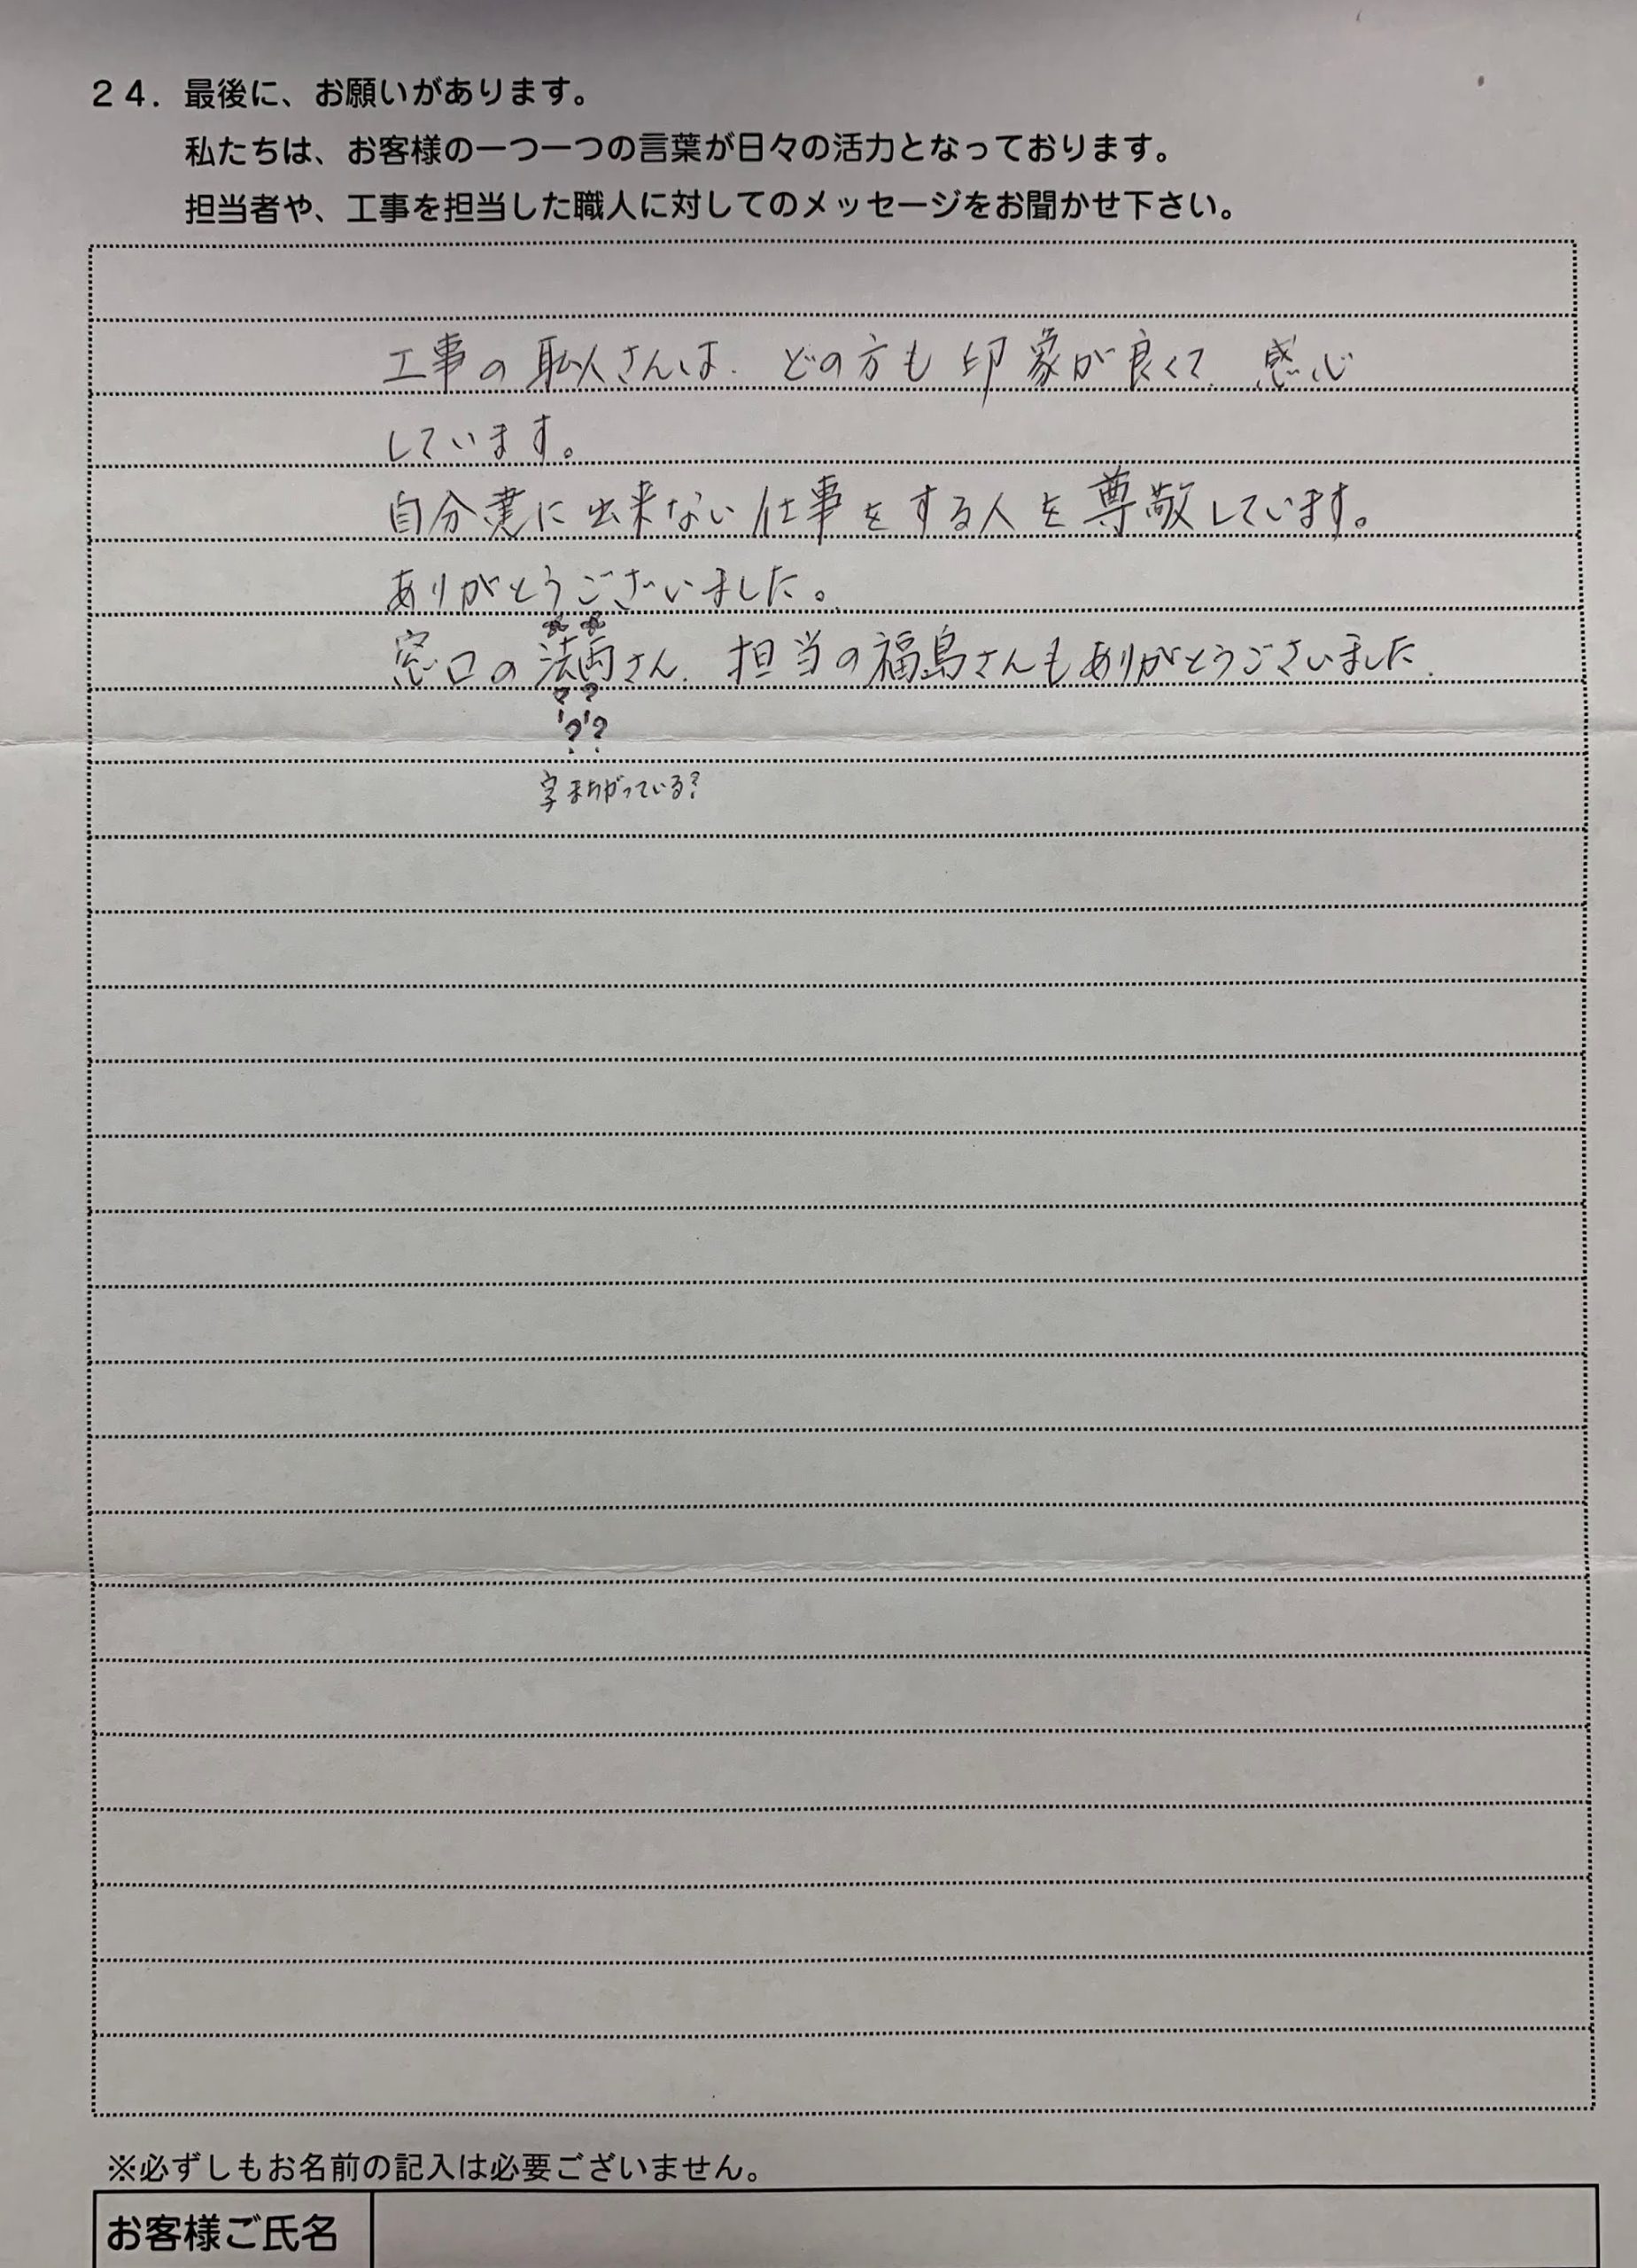 24. 最後に、お願いがあります。
私たちは、お客様の一つ一つの言葉が日々の活力となっております。
担当者や、工事を担当した職人に対してのメッセージをお聞かせ下さい。
工事の職人さんは、どの方も印象が良くて、感心
しています。
自分達に出来ない仕事をする人を尊敬しています。
ありがとうございました。
窓口の法両さん、担当の福島さんもありがとうございました.
? ?
? ?
字まちがっている?
※必ずしもお名前の記入は必要ございません。
お客様ご氏名